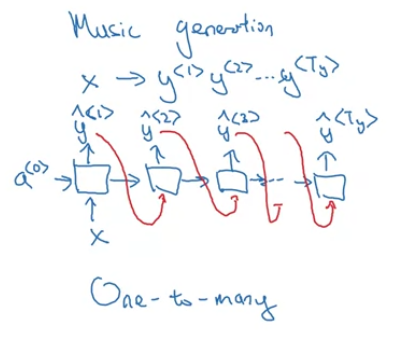 Music generation
x → y<1> y<2> ... y<Ty>
ŷ<1> ŷ<2> ŷ<3> ŷ<Ty>
a<0> → → → → ... →
x
One-to-many